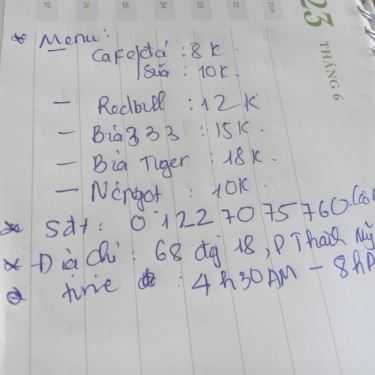 23
THÁNG 6
* Menu:
Cafe/đá : 8K
/Sữa : 10K.
— Redbull : 12K
— Bia 333 : 15K.
— Bia Tiger : 18K.
— Nc ngọt : 10K
* Sdt: 0122 70 75 760.
* Địa chỉ : 68 đg 18, P Thạch Mỹ
time : 4h30AM - 8h